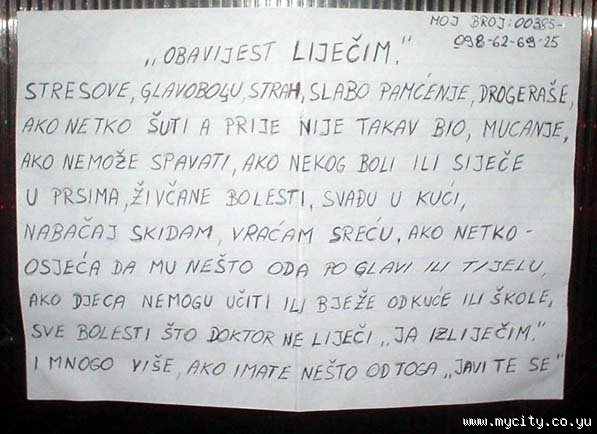 MOJ BROJ: 00385-
098-62-69-25
„OBAVIJEST LIJEČIM."
STRESOVE, GLAVOBOLJU, STRAH, SLABO PAMĆENJE, DROGERAŠE,
AKO NETKO ŠUTI A PRIJE NIJE TAKAV BIO, MUCANJE,
AKO NEMOŽE SPAVATI, AKO NEKOG BOLI ILI SIJEČE
U PRSIMA, ŽIVČANE BOLESTI, SVAĐU U KUĆI,
NABAČAJ SKIDAM, VRAĆAM SREĆU, AKO NETKO-
OSJEĆA DA MU NEŠTO ODA PO GLAVI ILI TIJELU,
AKO DJECA NEMOGU UČITI ILI BJEŽE ODKUĆE ILI ŠKOLE,
SVE BOLESTI ŠTO DOKTOR NE LIJEČI „JA IZLIJEČIM."
I MNOGO VIŠE, AKO IMATE NEŠTO OD TOGA „JAVITE SE"
www.mycity.co.yu